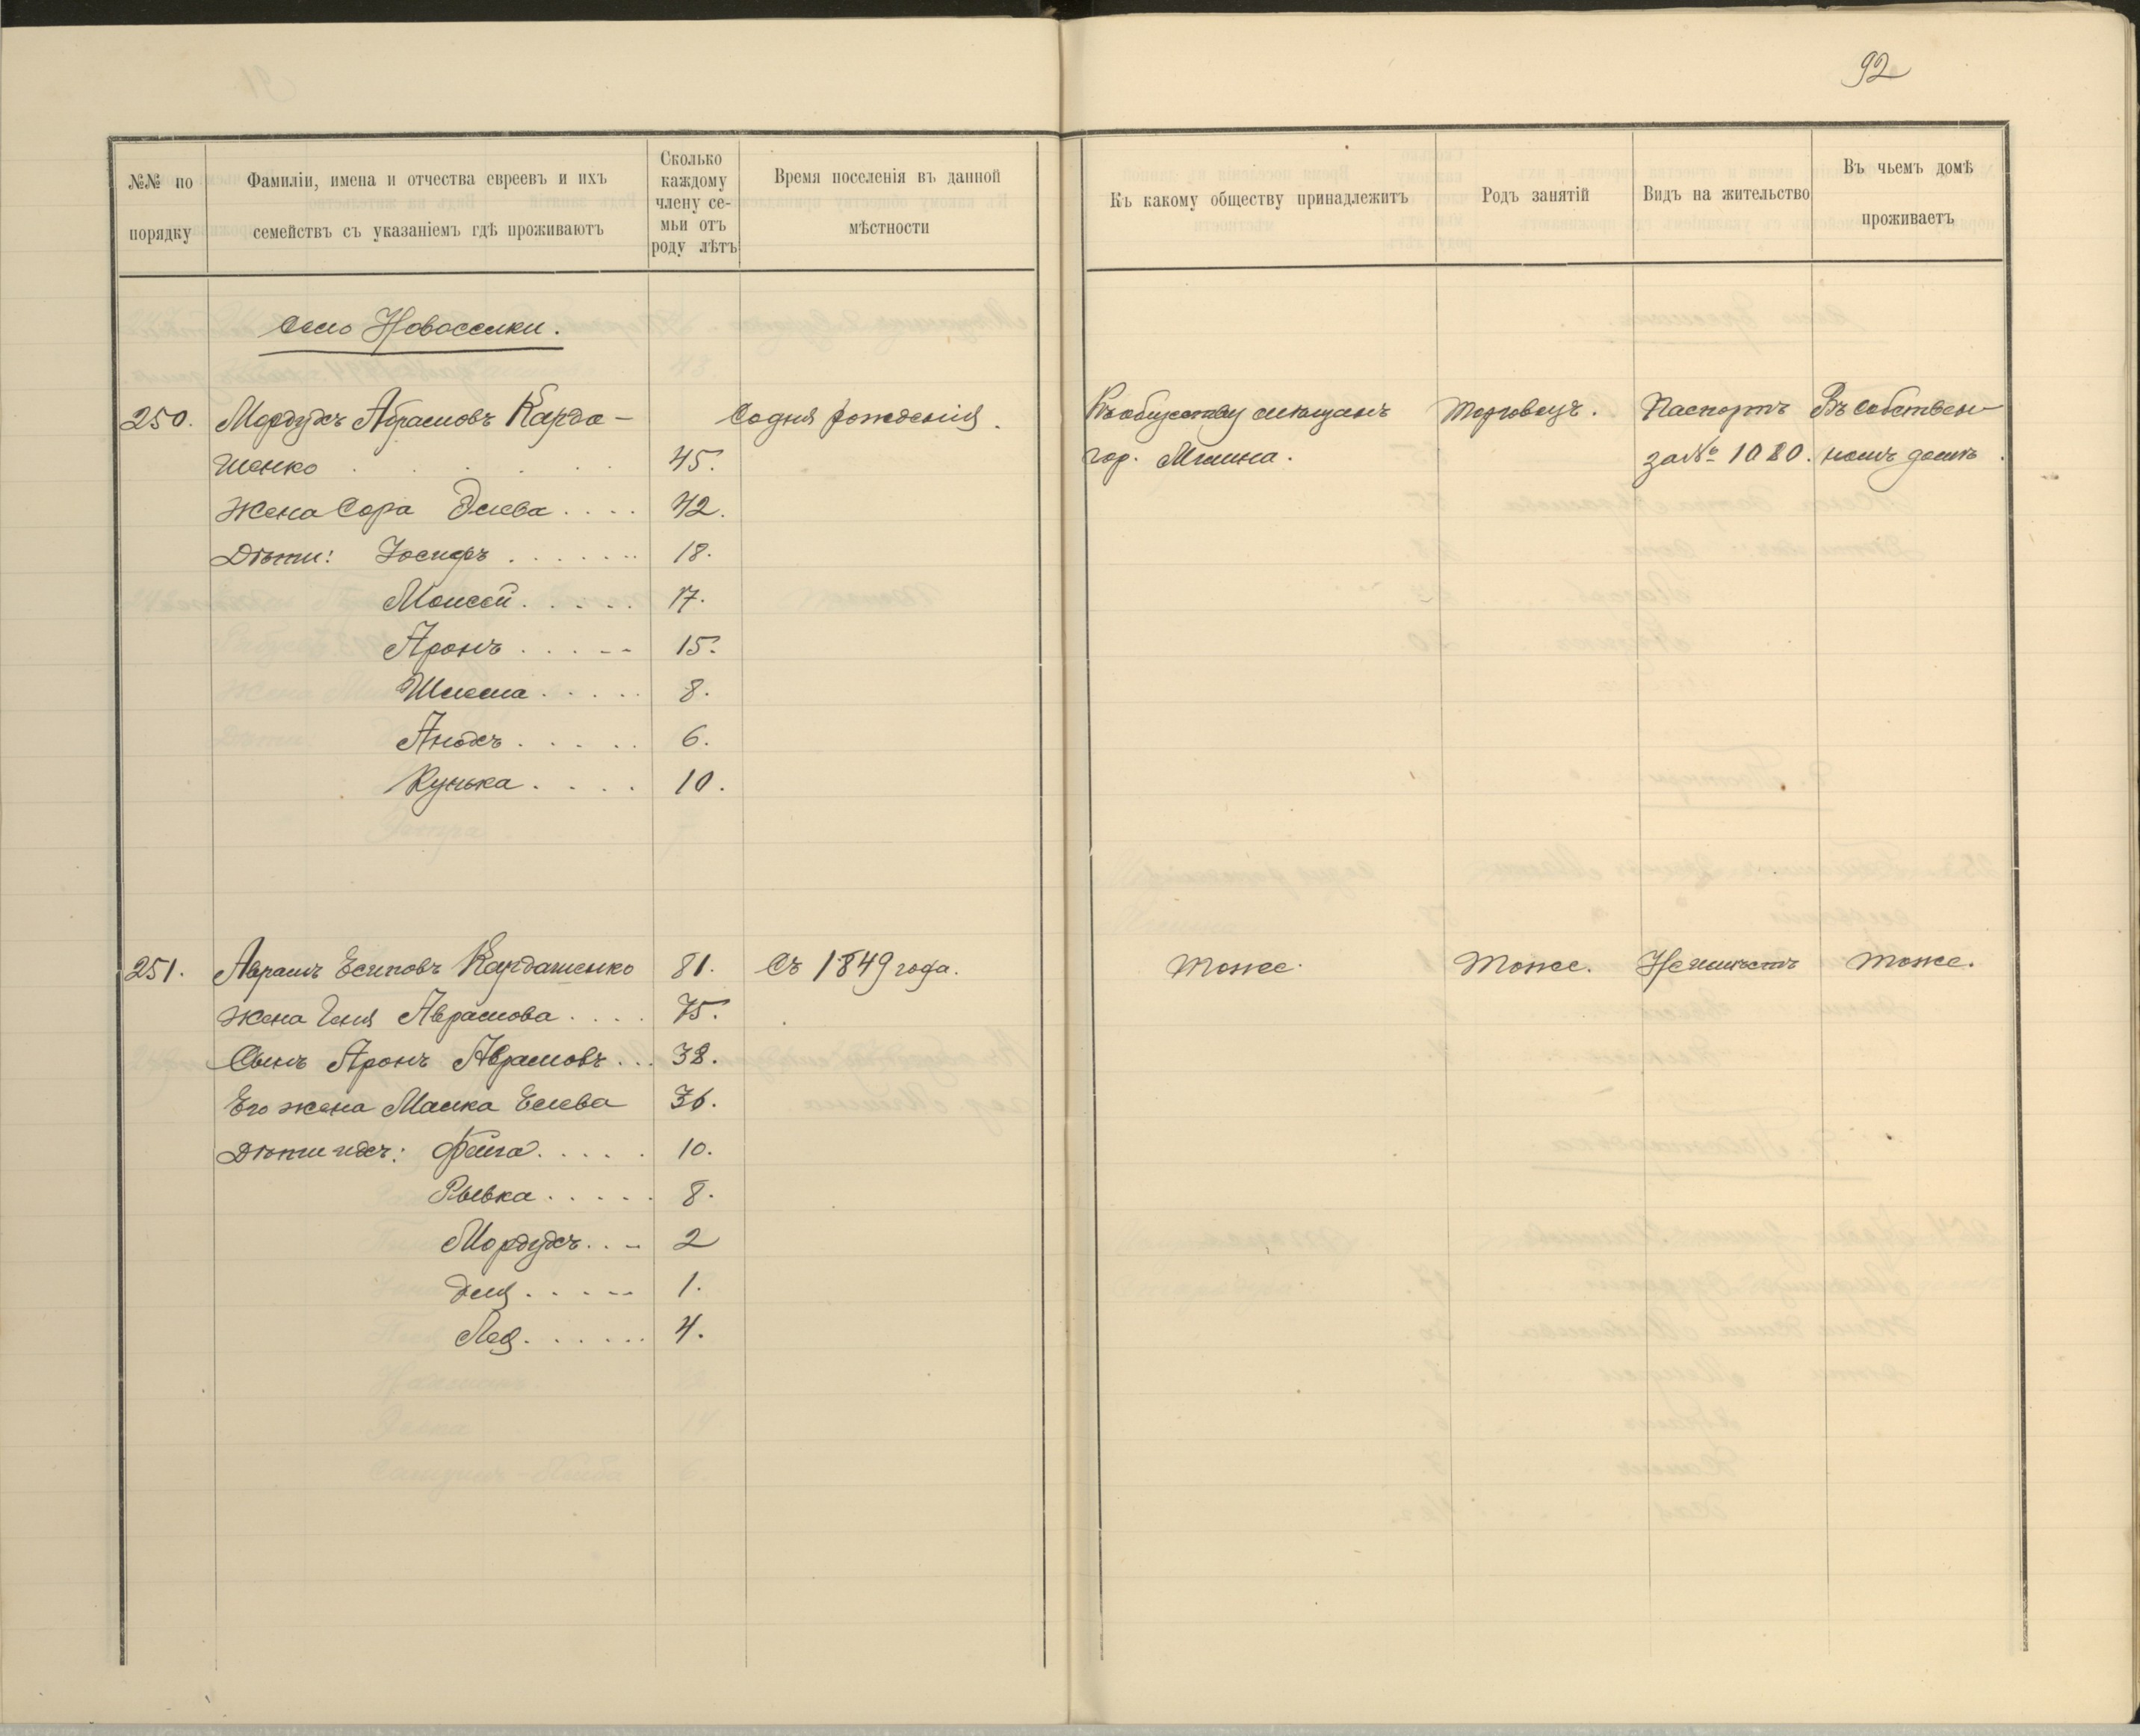 92
№№ по
порядку
Фамиліи, имена и отчества евреевъ и ихъ
семействъ съ указаніемъ гдѣ проживаютъ
Сколько
каждому
члену се-
мьи отъ
роду лѣтъ
Время поселенія въ данной
мѣстности
Къ какому обществу принадлежитъ
Родъ занятій
Видъ на жительство
Въ чьемъ домѣ
проживаетъ
Село Новоселки.
250. Мордухъ Абрамовъ Карда- Со дня рожденія. Къ обществу мѣщанъ Торговецъ. Паспортъ Въ собствен-
шенко 45. гор. Мглина. за № 1080. номъ домѣ.
Жена Сора Элева .... 42.
Дѣти: Іосифъ ....... 18.
Моисей ..... 17.
Аронъ ..... 15.
Шлема ..... 8.
Анохъ ..... 6.
Кунька .... 10.
251. Аврамъ Есиповъ Кардашенко 81. Съ 1849 года. Тоже. Тоже. Неимѣетъ Тоже.
Жена Геня Аврамова .... 75.
Сынъ Аронъ Аврамовъ ... 38.
Его жена Малка Елева 36.
Дѣти ихъ: Фейга ..... 10.
Рывка ..... 8.
Мордухъ ... 2
Эля ..... 1.
Лея ...... 4.